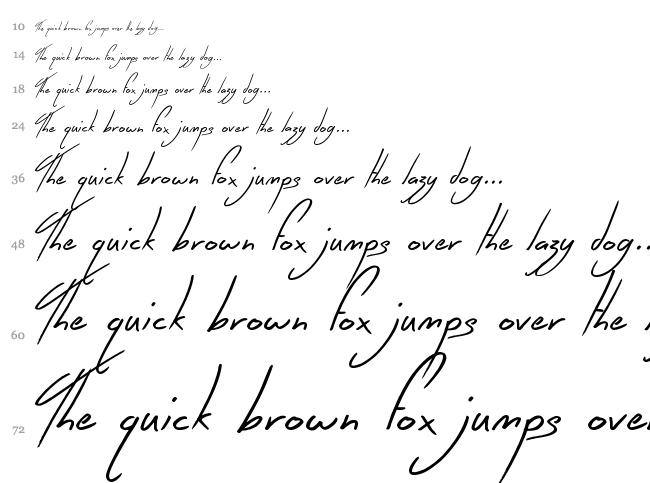 10 The quick brown fox jumps over the lazy dog...
14 The quick brown fox jumps over the lazy dog...
18 The quick brown fox jumps over the lazy dog...
24 The quick brown fox jumps over the lazy dog...
36 The quick brown fox jumps over the lazy dog...
48 The quick brown fox jumps over the lazy dog..
60 The quick brown fox jumps over the
72 The quick brown fox jumps over